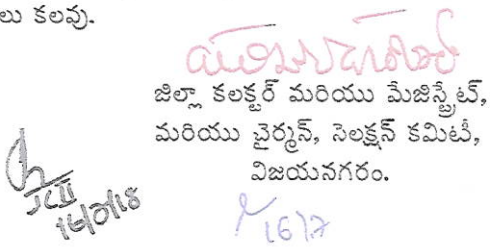 లు కలవు.
జిల్లా కలక్టర్ మరియు మేజిస్ట్రేట్,
మరియు ఛైర్మన్, సెలక్షన్ కమిటీ,
విజయనగరం.
JCII
16/7